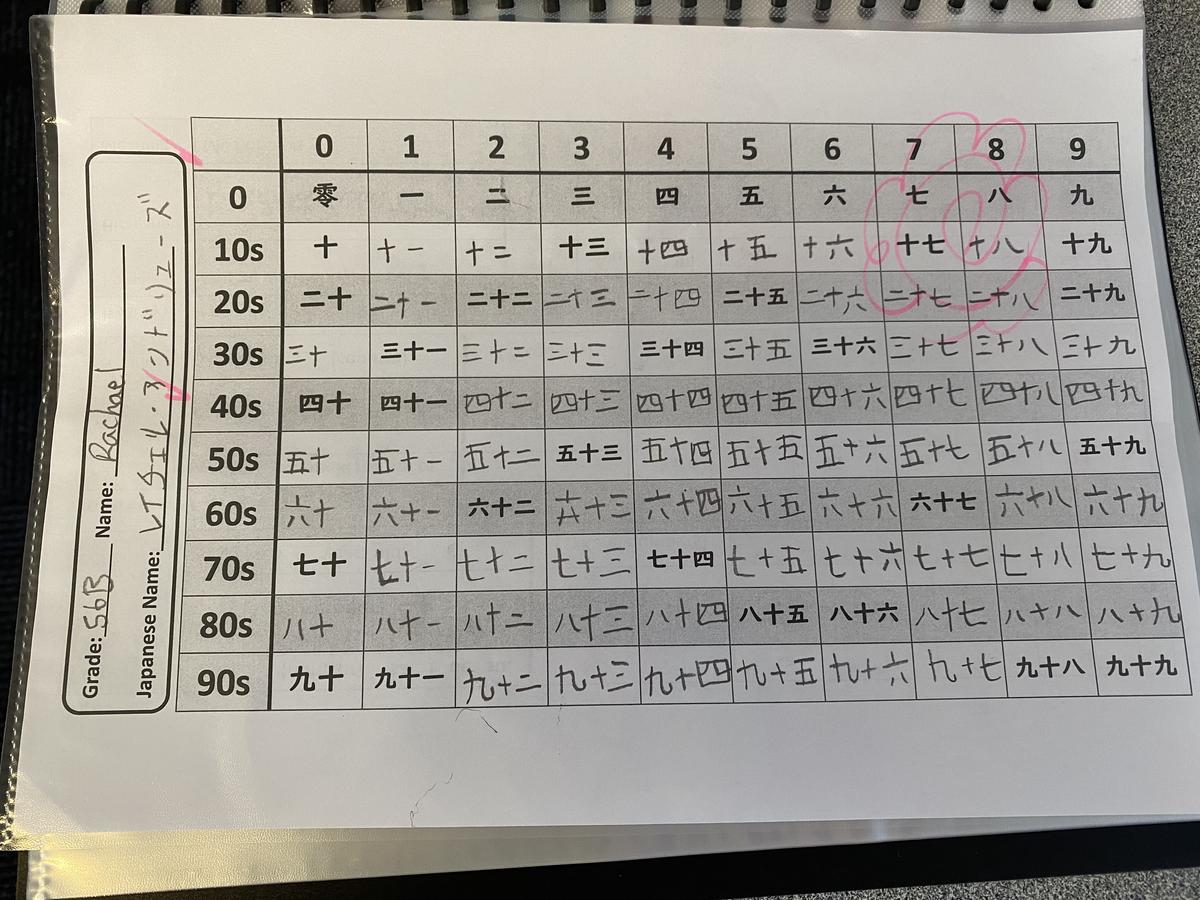 Grade: S6B Name: Rachael
Japanese Name:
0 1 2 3 4 5 6 7 8 9
0 零 一 二 三 四 五 六 七 八 九
10s 十 十一 十二 十三 十四 十五 十六 十七 十八 十九
20s 二十 二十一 二十二 二十三 二十四 二十五 二十六 二十七 二十八 二十九
30s 三十 三十一 三十二 三十三 三十四 三十五 三十六 三十七 三十八 三十九
40s 四十 四十一 四十二 四十三 四十四 四十五 四十六 四十七 四十八 四十九
50s 五十 五十一 五十二 五十三 五十四 五十五 五十六 五十七 五十八 五十九
60s 六十 六十一 六十二 六十三 六十四 六十五 六十六 六十七 六十八 六十九
70s 七十 七十一 七十二 七十三 七十四 七十五 七十六 七十七 七十八 七十九
80s 八十 八十一 八十二 八十三 八十四 八十五 八十六 八十七 八十八 八十九
90s 九十 九十一 九十二 九十三 九十四 九十五 九十六 九十七 九十八 九十九